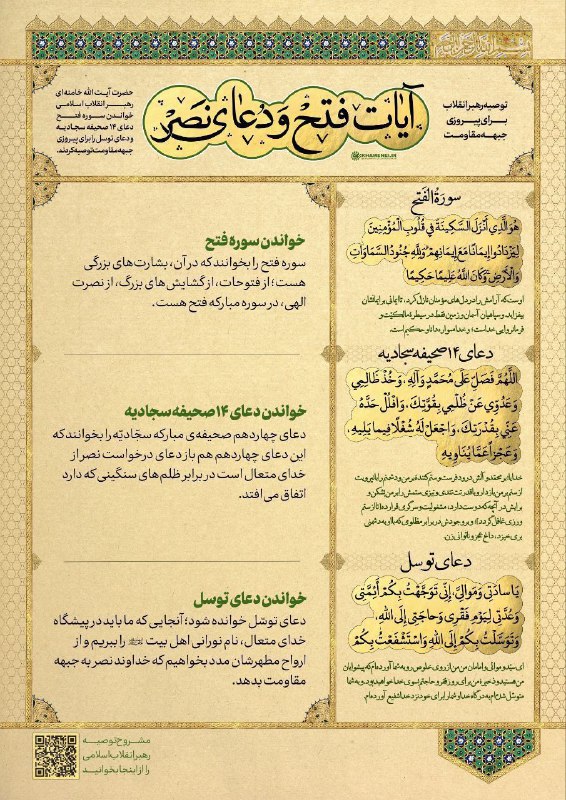 توصیه رهبر انقلاب
برای پیروزی
جبهه مقاومت
آیات فتح و دعای نصر
KHAMENEI.IR
حضرت آیت الله خامنه ای
رهبر انقلاب اسلامی
خواندن سوره فتح
دعای ۱۴ صحیفه سجادیه
و دعای توسل را برای پیروزی
جبهه مقاومت توصیه کردند.
سورَةُ الفَتح
هُوَ الَّذِي أَنْزَلَ السَّكِينَةَ فِي قُلُوبِ الْمُؤْمِنِينَ
لِيَزْدَادُوا إِيمَانًا مَعَ إِيمَانِهِمْ وَلِلَّهِ جُنُودُ السَّمَاوَاتِ
وَالْأَرْضِ وَكَانَ اللَّهُ عَلِيمًا حَكِيمًا
اوست که آرامش را در دل های مؤمنان نازل کرد، تا ایمانی بر ایمانشان
بیفزاید و سپاهیان آسمان و زمین فقط در سیطره مالکیّت و
فرمانروایی خداست؛ و خدا همواره دانا و حکیم است.
خواندن سوره فتح
سوره فتح را بخوانند که در آن، بشارت های بزرگی
هست؛ از فتوحات، از گشایش های بزرگ، از نصرت
الهی، در سوره مبارکه فتح هست.
دعای ۱۴ صحیفه سجادیه
اللَّهُمَّ فَصَلِّ عَلَى مُحَمَّدٍ وَآلِهِ، وَخُذْ ظَالِمِي
وَعَدُوِّي عَنْ ظُلْمِي بِقُوَّتِكَ، وَافْلُلْ حَدَّهُ
عَنِّي بِقُدْرَتِكَ، وَاجْعَلْ لَهُ شُغْلًا فِيمَا يَلِيهِ
وَعَجْزاً عَمَّا يُنَاوِيهِ
خدایا! بر محمّد و آلش درود فرست و ستم کننده بر من و دشمنم را با نیرویت
از ستم بر من باز دار و با قدرتت تندی و تیزی ستمش را بر من بشکن و
خواندن دعای ۱۴ صحیفه سجادیه
دعای چهاردهم صحیفه‌ی مبارکه سجّادیّه را بخوانند که
این دعای چهاردهم هم باز دعای درخواست نصر از
خدای متعال است در برابر ظلم های سنگینی که دارد
اتفاق می افتد.
دعای توسل
يَا سَادَتِي وَمَوَالِيَّ، إِنِّي تَوَجَّهْتُ بِكُمْ أَئِمَّتِي
وَعُدَّتِي لِيَوْمِ فَقْرِي وَحَاجَتِي إِلَى اللَّهِ،
وَتَوَسَّلْتُ بِكُمْ إِلَى اللَّهِ وَاسْتَشْفَعْتُ بِكُمْ
خواندن دعای توسل
دعای توسّل خوانده شود؛ آنجایی که ما باید در پیشگاه
خدای متعال، نام نورانی اهل بیت را ببریم و از
ارواح مطهرشان مدد بخواهیم که خداوند نصر به جبهه
مقاومت بدهد.
مشروح توصیه
رهبر انقلاب اسلامی
را از اینجا بخوانید